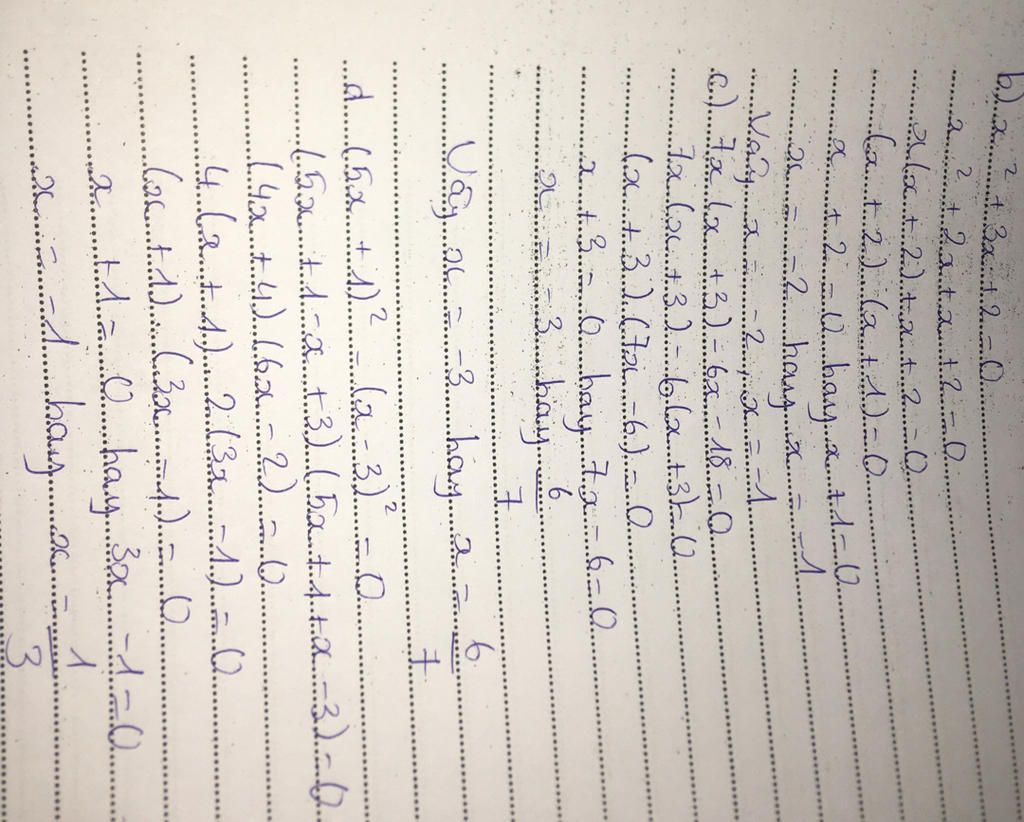 b) x² + 3x + 2 = 0
x² + 2x + x + 2 = 0
x(x + 2) + x + 2 = 0
(x + 2) (x + 1) = 0
x + 2 = 0 hay x + 1 = 0
x = -2 hay x = -1
Vậy x = -2, x = -1
c) 7x (x + 3) - 6x - 18 = 0
7x (x + 3) - 6 (x + 3) = 0
(x + 3) (7x - 6) = 0
x + 3 = 0 hay 7x - 6 = 0
x = -3 hay 6/7
Vậy x = -3 hay x = 6/7
d (5x + 1)² - (x - 3)² = 0
(5x + 1 - x + 3) (5x + 1 + x - 3) = 0
(4x + 4) (6x - 2) = 0
4 (x + 1) 2 (3x - 1) = 0
(x + 1) (3x - 1) = 0
x + 1 = 0 hay 3x - 1 = 0
x = -1 hay x = 1/3